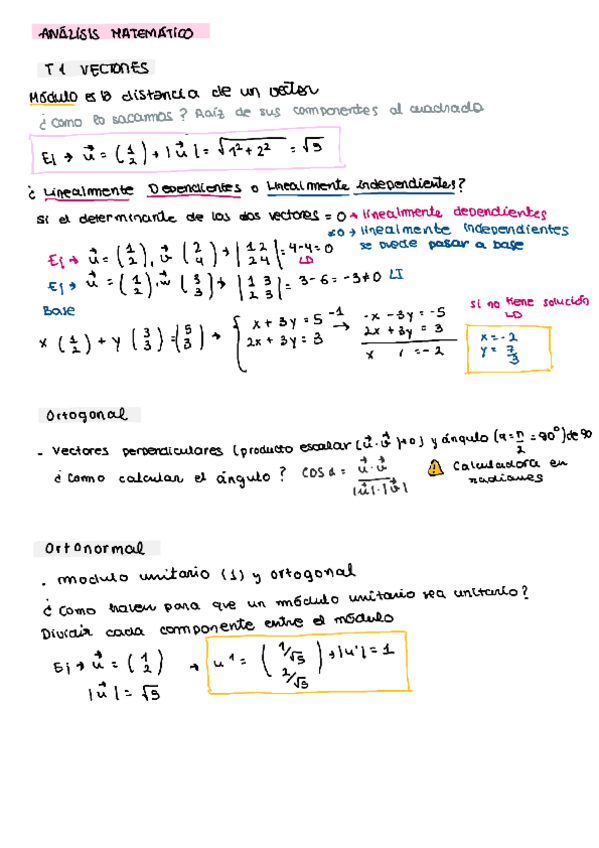 ANÁLISIS MATEMÁTICO
T1 VECTORES
Módulo es la distancia de un vector
¿como lo sacamos? Raíz de sus componentes al cuadrado
Ej → u⃗ = (1 2) → |u⃗| = √1²+2² = √5
¿Linealmente Dependientes o Linealmente independientes?
Si el determinante de los dos vectores = 0 → linealmente dependientes
≠0 → linealmente independientes
se puede pasar a base
Ej → u⃗ = (1 2), v⃗ (2 4) → |1 2 2 4| = 4-4=0 LD
Ej → u⃗ = (1 2), w⃗ (3 3) → |1 3 2 3| = 3-6 = -3≠0 LI
Base
x (1 2) + y (3 3) = (5 3) → { x + 3y = 5 -1 → -x - 3y = -5
2x + 3y = 3 2x + 3y = 3
x / = -2
si no tiene solución LD
x = -2
y = 7/3
Ortogonal
- Vectores perpendiculares (producto escalar (u⃗·v⃗)=0) y ángulo (α = π/2 = 90°) de 90
¿Como calcular el ángulo? cos α = u⃗·v⃗ / |u⃗|·|v⃗|
Calculadora en
radianes
Ortonormal
. modulo unitario (1) y ortogonal
¿Como hacen para que un módulo unitario sea unitario?
Dividir cada componente entre el módulo
Ej → u⃗ = (1 2) → u' = (1/√5 2/√5) → |u'| = 1
|u⃗| = √5